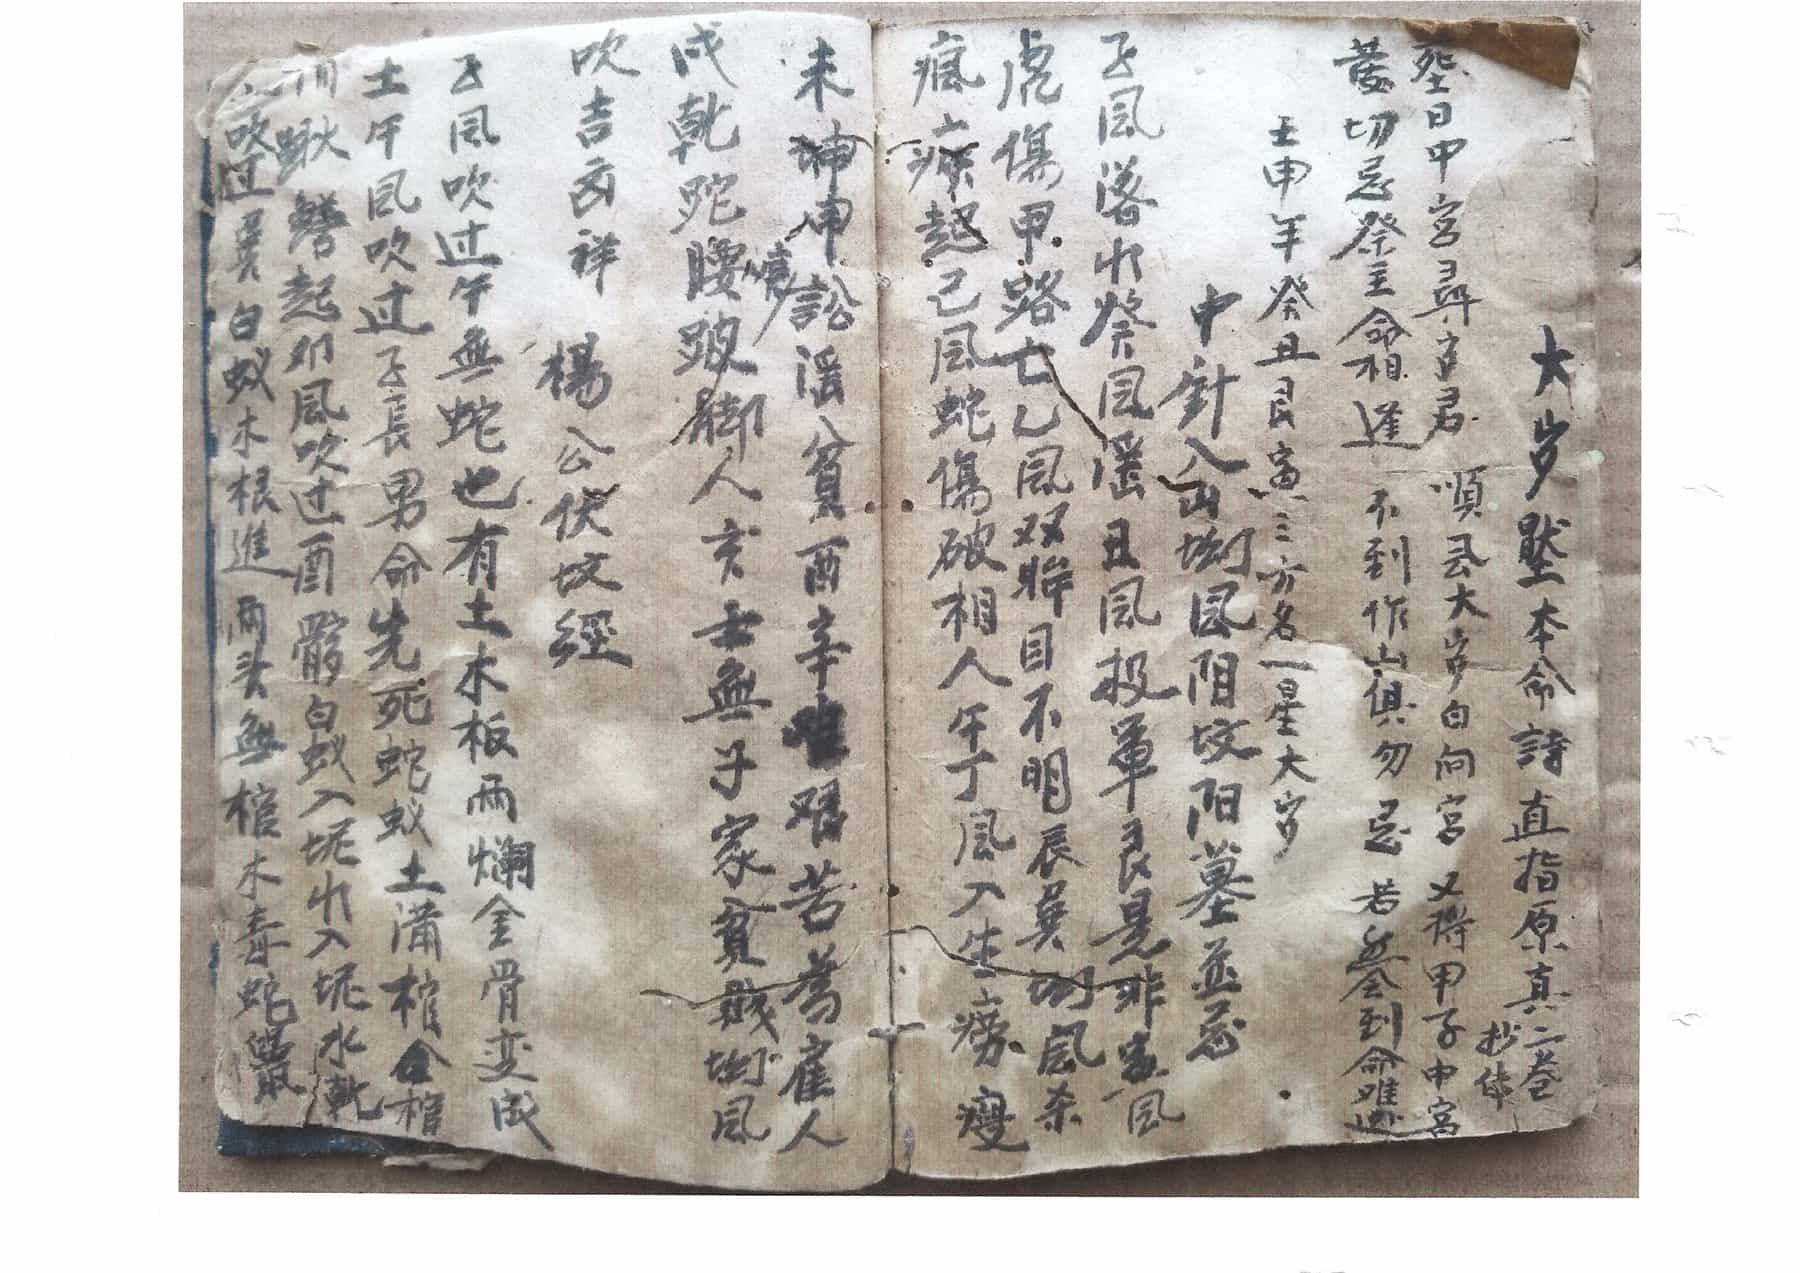 大岁墍本命詩直指原真二卷
抄体
塟日中宮尋字君 順㐲大岁白向宮 又得甲子中宮
墓切忌祭主命相逢 不到作山俱勿忌 若然全到命難逃
壬申年癸丑艮寅三方名一星大岁
中針入山坳風阴坟阳墓並忌
子風落水癸風滛丑風投軍艮是非寅風
虎傷甲路亡乙風双眸目不明辰巽坳風杀
瘋疾起己風蛇傷破相人午丁風入生痨瘦
未坤申訟滛貧酉辛艰苦蔫雇人
戌乾跎腰跛脚人亥壬無子家貧賎坳風
吹吉凶祥
楊公伏坟經
子風吹过午無蛇也有土木板兩爛全骨变成
土午風吹过子長男命先死蛇蚁土滿棺全棺
鰍鱔起卯風吹过酉骸白蚁入坭水入坭水乾
吹过巽白蚁木根進兩头無棺木毒蛇